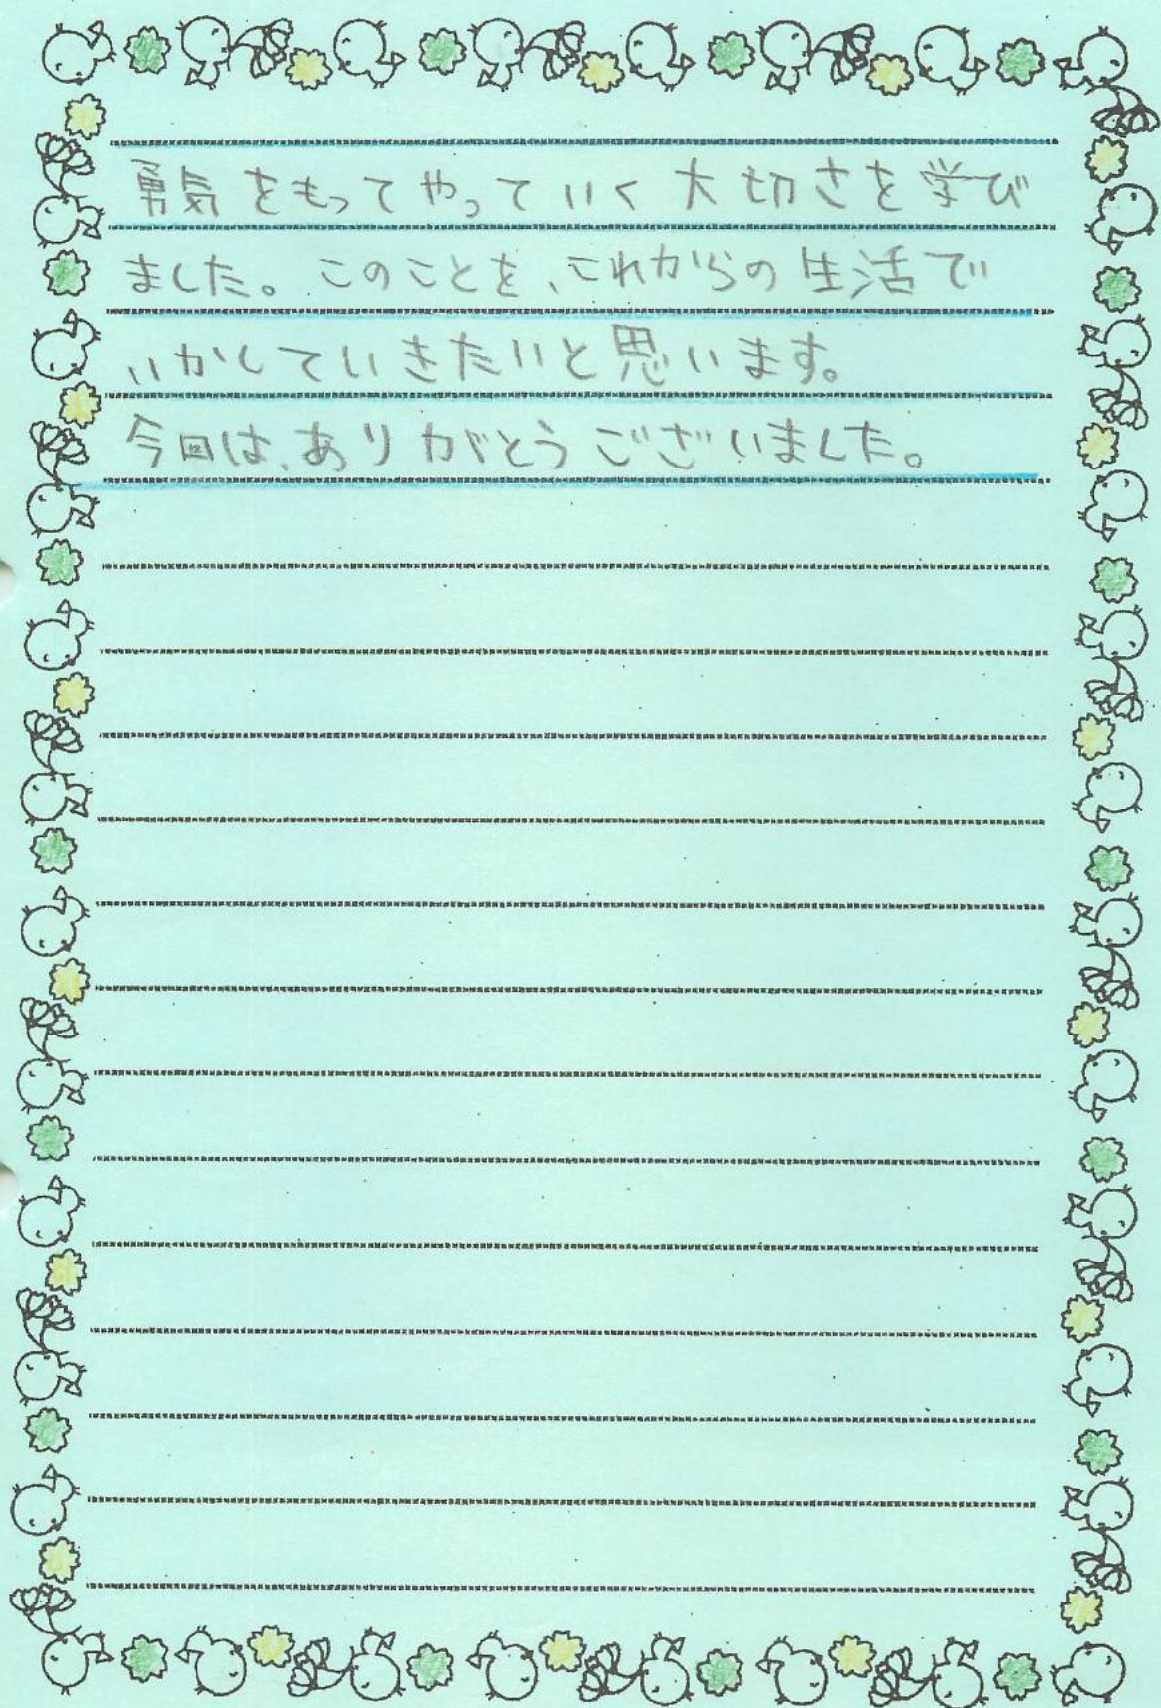 勇気をもってやっていく大切さを学び
ました。このことを、これからの生活で
いかしていきたいと思います。
今回は、ありがとうございました。